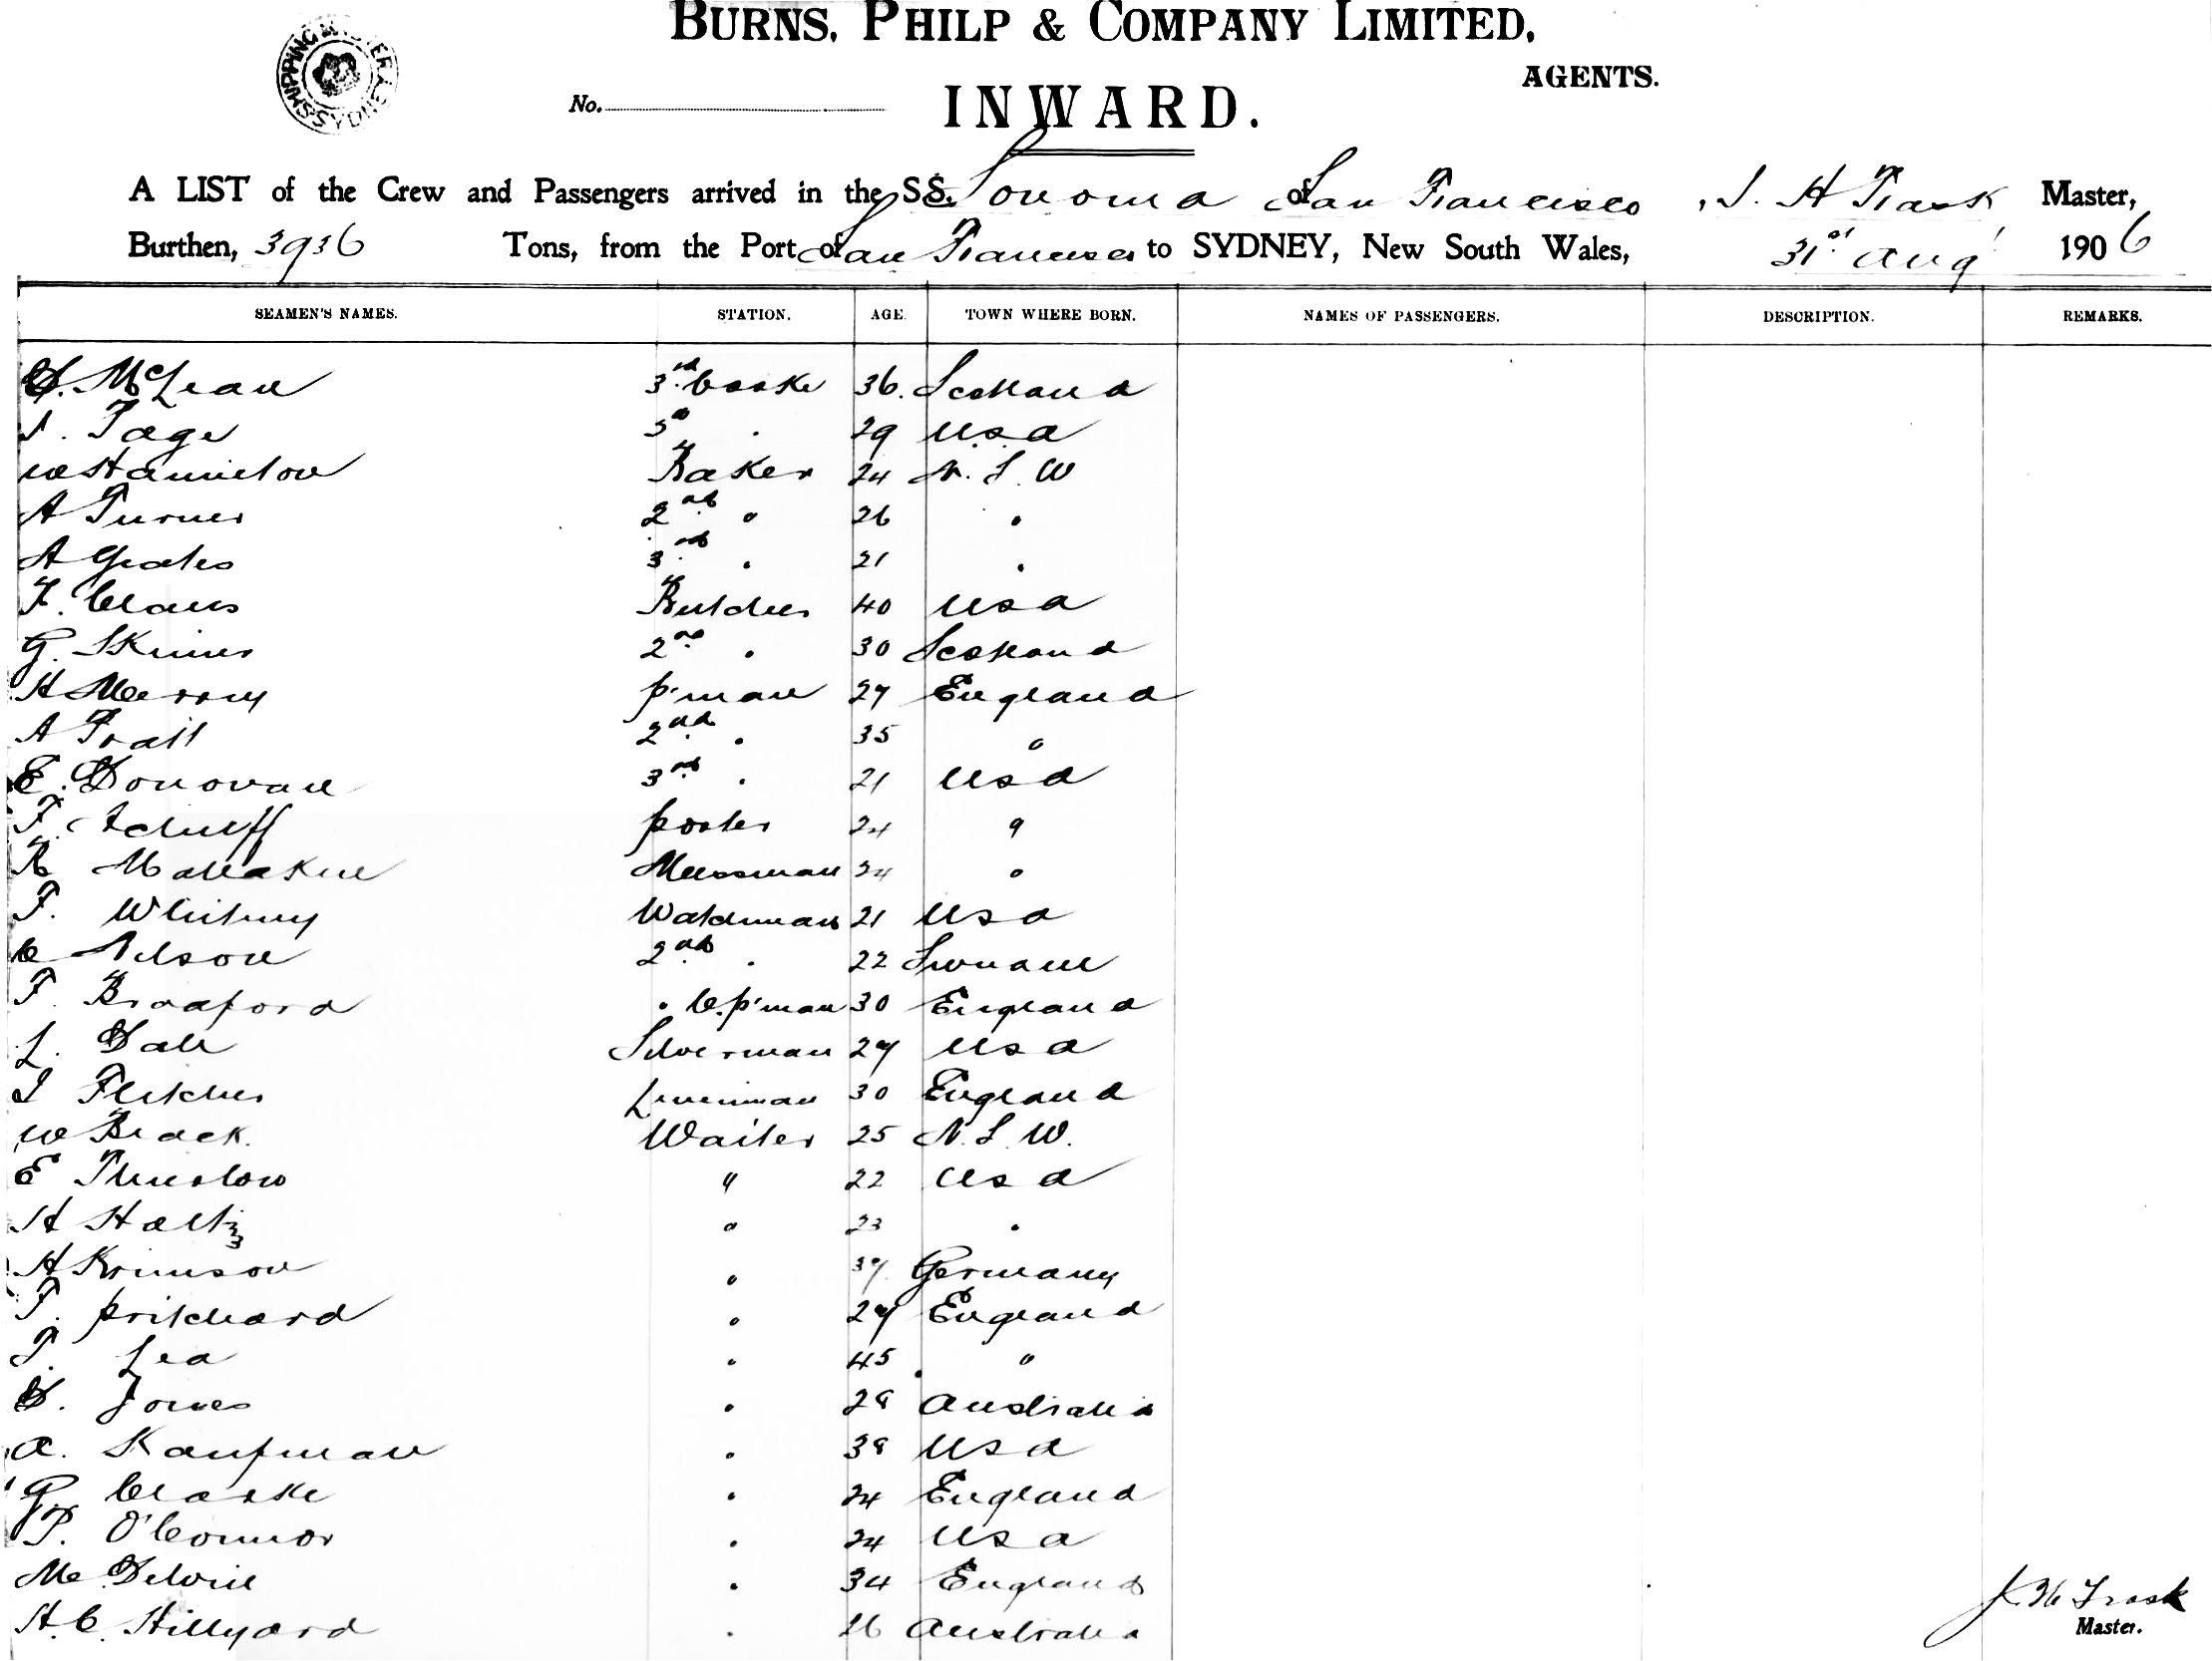 BURNS, PHILP & COMPANY LIMITED,
AGENTS.
SHIPPING MASTER SYDNEY
No.
INWARD.
A LIST of the Crew and Passengers arrived in the SS. Sonoma of San Francisco, J. H Trask Master,
Burthen, 3936 Tons, from the Port of San Francisco to SYDNEY, New South Wales, 31st Aug 1906
SEAMEN'S NAMES. STATION. AGE. TOWN WHERE BORN. NAMES OF PASSENGERS. DESCRIPTION. REMARKS.
D. McLean 3rd Cooke 36. Scotland
Page 29 U.S.A
W Hamilton Baker 24 N.S.W
A Turner 2nd " 26 "
A 3rd " 21 "
F. Claus Butcher 40 USA
G. Skinner 2nd " 30 Scotland
H Merry p'man 27 England
A Trail 2nd " 35 "
E. Donovan 3rd " 21 USA
F. Schuff porter 24 "
Messman 24 "
F. Whitney Watchman 21 USA
C Nelson 2nd " 22
F. Bradford " C.p'man 30 England
L. Dale Silverman 27 USA
J Fletcher Linenman 30 England
W Black. Waiter 25 N.S.W.
E Thurslow " 22 USA
H Haltz " 23 "
H Krimson " 37 Germany
T. Pritchard " 27 England
T. Lea " 45 "
D. Jones " 28 Australia
A. Kaufman " 38 USA
G Clarke " 24 England
P. O'Connor " 24 USA
" 34 England
H.C. Hillyard " 26 Australia
J. H Trask
Master.